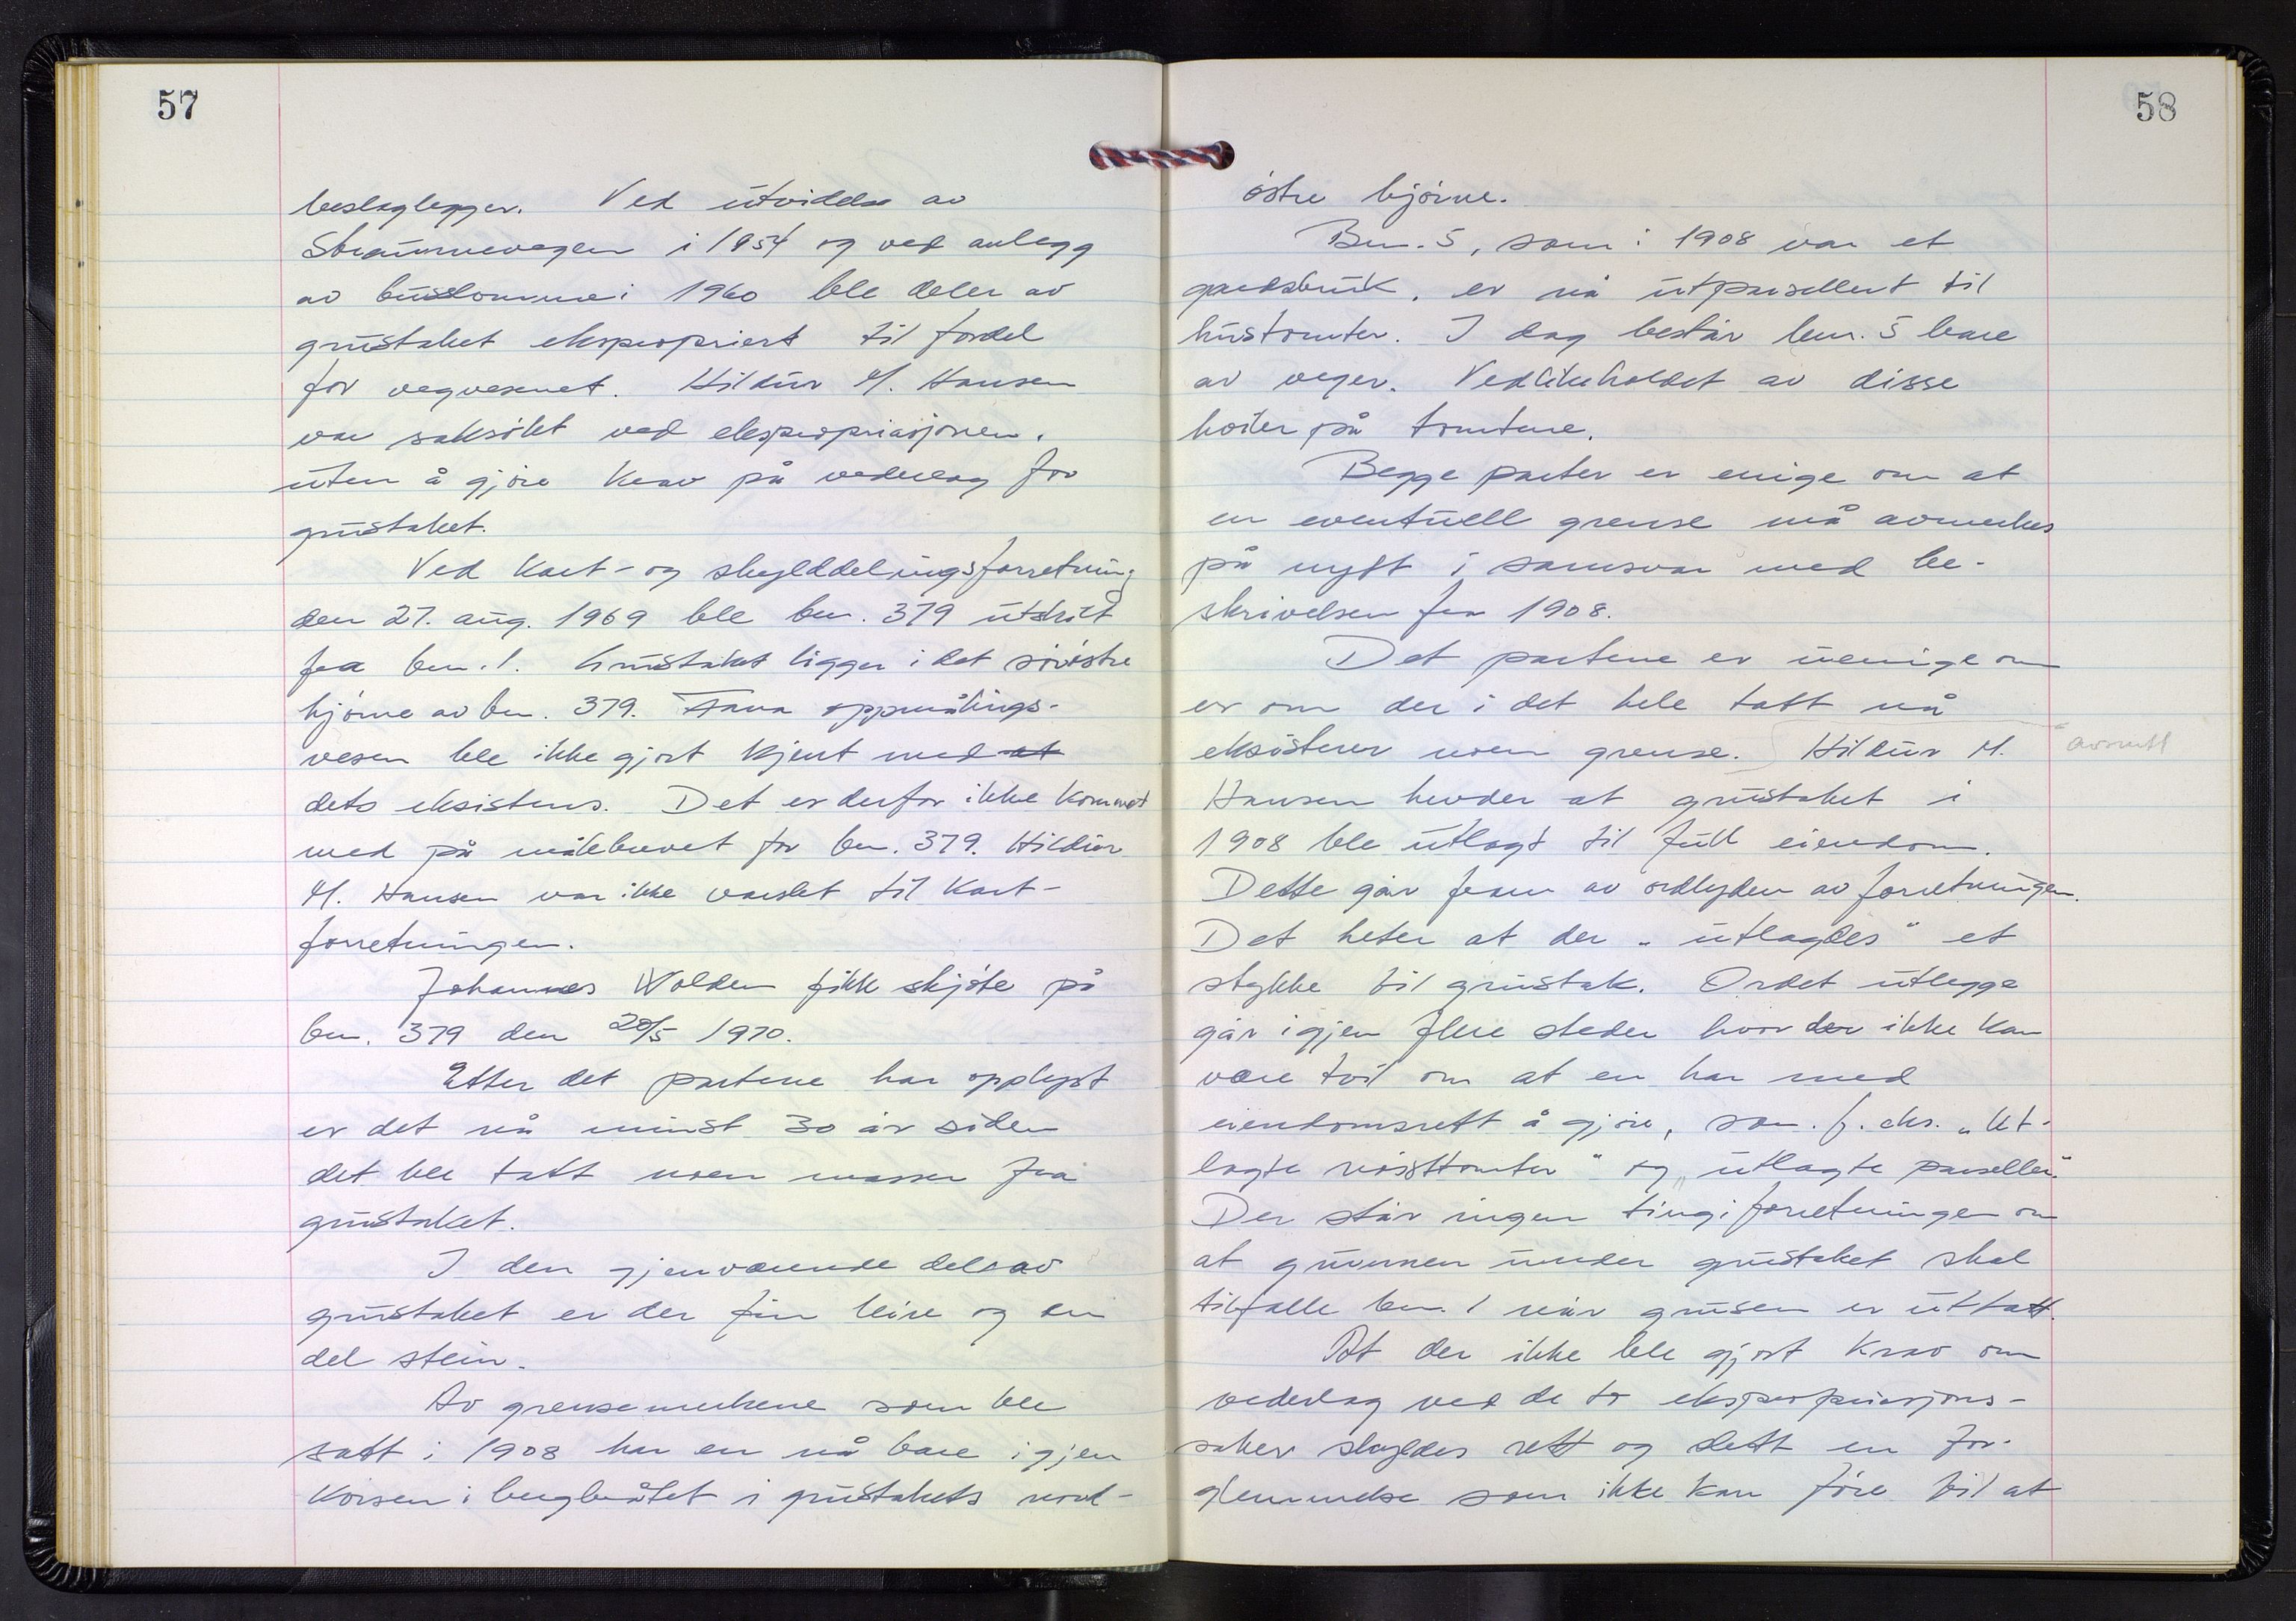 57
beslaglegger. Ved utvidelse av
Straumevegen i 1954 og ved anlegg
av busslomme i 1960 ble deler av
grustaket ekspropriert til fordel
for vegvesenet. Hildur M. Hansen
var saksökt ved ekspropriasjonen.
uten å gjöre krav på vederlag for
grustaket.
Ved kart- og skylddelingsforretning
den 27. aug. 1969 ble bnr. 379 utskilt
fra bnr. 1. Grustaket ligger i det söröstre
hjörne av bnr. 379. Fana oppmålings-
vesen ble ikke gjort kjent med at
dets eksistens. Det er derfor ikke kommet
med på målebrevet for bnr. 379. Hildur
M. Hansen var ikke varslet til kart-
forretningen.
Johannes Wolden fikk skjöte på
bnr. 379 den 28/5 1970.
Etter det partene har opplyst
er det nå minst 30 år siden
det ble tatt noen masser fra
grustaket.
I den gjenværende del av
grustaket er der fin leire og en
del stein.
Av grensemerkene som ble
satt i 1908 har en nå bare igjen
korsen i bergbråtet i grustakets nord-
58
östre hjörne.
Bnr. 5, som i 1908 var et
gardsbruk, er nå utparsellert til
hustomter. I dag består bnr. 5 bare
av veger. Vedlikeholdet av disse
hviler på tomtene.
Begge parter er enige om at
en eventuell grense må avmerkes
på nytt i samsvar med be-
skrivelsen fra 1908.
Det partene er uenige om
er om der i det hele tatt nå
eksisterer noen grense. Hildur M.
avsnitt
Hansen hevder at grustaket i
1908 ble utlagt til full eiendom.
Dette går fram av ordlyden av forretningen.
Det heter at der „utlagdes" et
stykke til grustak. Ordet utlegge
går igjen flere steder hvor der ikke kan
være tvil om at en har med
eiendomsrett å gjöre, som f. eks. „Ut-
lagte nösttomter" og „utlagte parseller".
Der står ingen ting i forretningen om
at grunnen under grustaket skal
tilfalle bnr. 1 når grusen er uttatt.
At der ikke ble gjort krav om
vederlag ved de to ekspropriasjons-
saker skyldes rett og slett en for-
glemmelse som ikke kan före til at